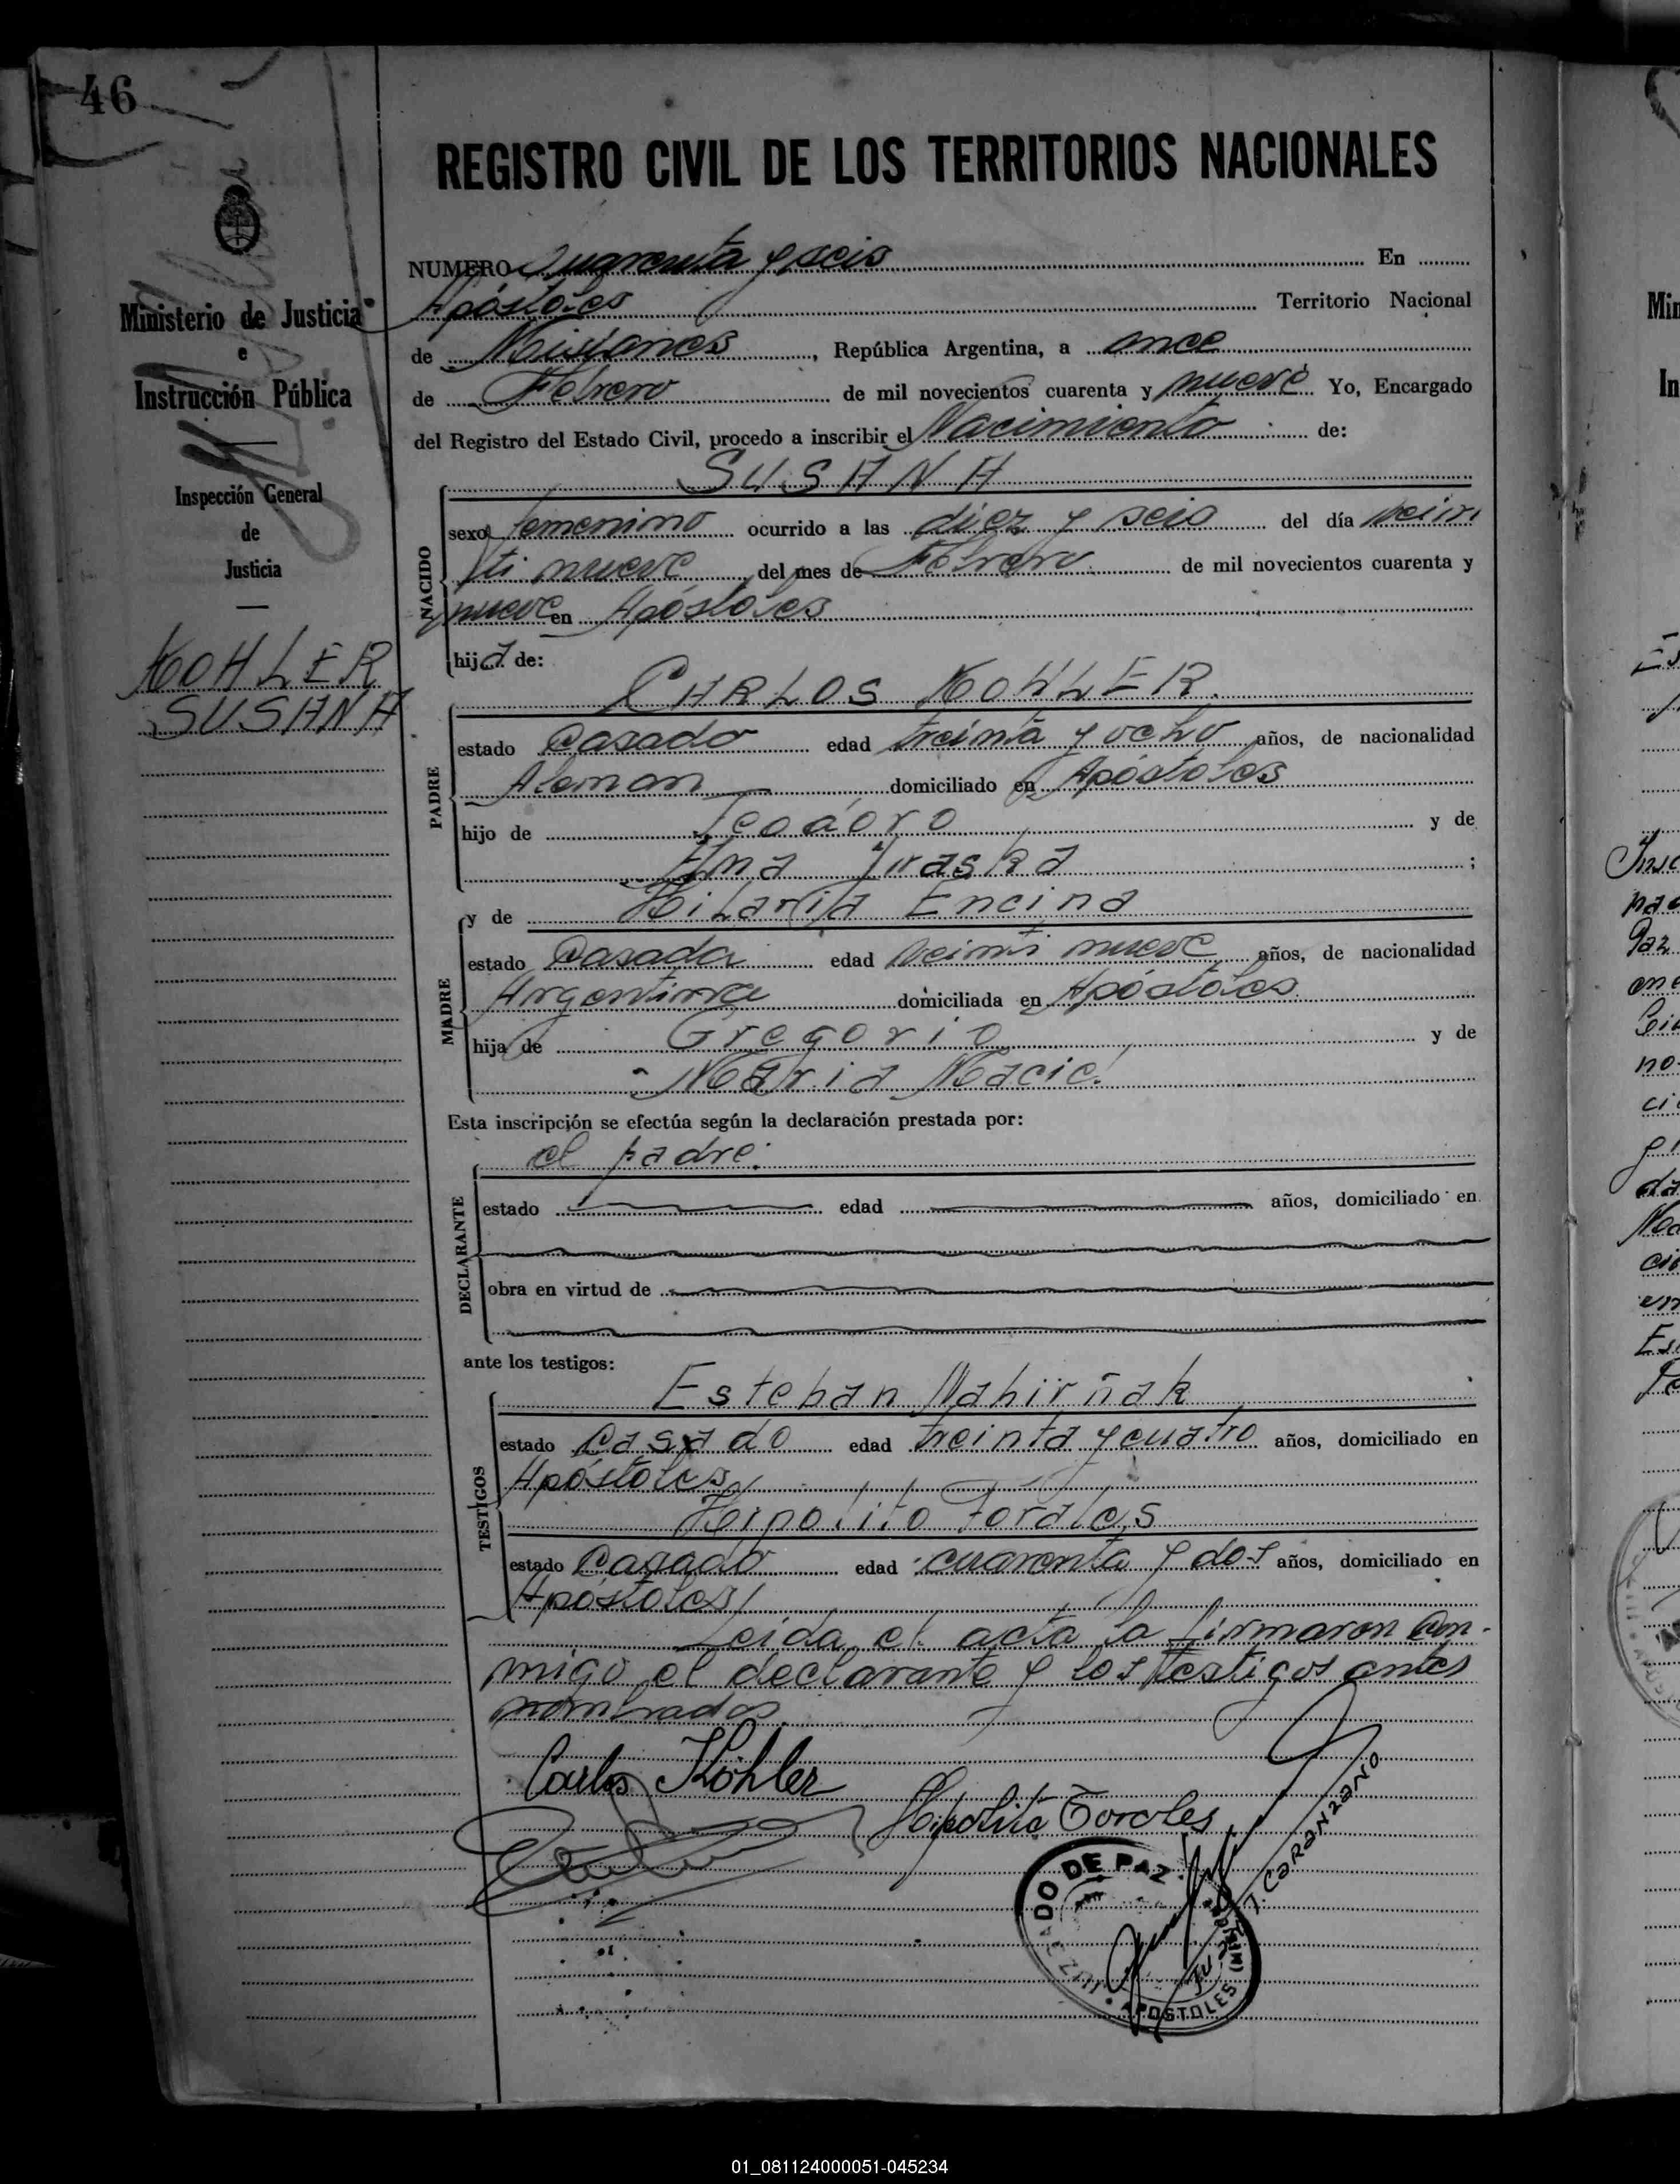 46
REGISTRO CIVIL DE LOS TERRITORIOS NACIONALES
NUMERO Cuarenta y seis En
Apóstoles Territorio Nacional
de Misiones, República Argentina, a once
de Febrero de mil novecientos cuarenta y nueve Yo, Encargado
del Registro del Estado Civil, procedo a inscribir el Nacimiento de:
SUSANA
Ministerio de Justicia
e
Instrucción Pública
Inspección General
de
Justicia
KOHLER
SUSANA
NACIDO
sexo femenino ocurrido a las diez y seis del día vein
ti nueve del mes de Febrero de mil novecientos cuarenta y
nueve en Apóstoles
hija de:
CARLOS KOHLER
PADRE
estado Casado edad treinta y ocho años, de nacionalidad
Aleman domiciliado en Apóstoles
hijo de Teodoro y de
Ana ;
y de Hilaria Encina
MADRE
estado Casada edad veinti nueve años, de nacionalidad
Argentina domiciliada en Apóstoles
hija de Gregorio y de
Maria Maciel
Esta inscripción se efectúa según la declaración prestada por:
el padre.
DECLARANTE
estado edad años, domiciliado en
obra en virtud de
ante los testigos:
Esteban Nahirñak
TESTIGOS
estado Casado edad treinta y cuatro años, domiciliado en
Apóstoles
Hipolito Torales
estado Casado edad cuarenta y dos años, domiciliado en
Apóstoles
Leida el acta la firmaron con-
migo el declarante y los testigos antes
nombrados
Carlos Köhler
Hipolito Torales
J. CARANZANO
JUZGADO DE PAZ
APOSTOLES (MNES)
01_081124000051-045234